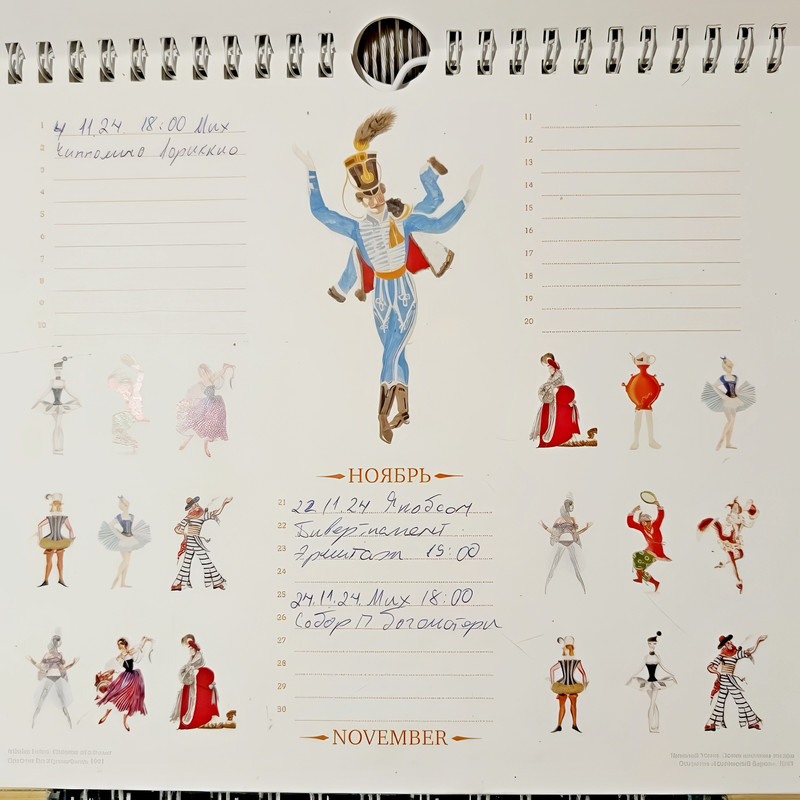 1
4 11.24 18:00 Мих
2
Чипполино Лориккио
3
4
5
6
7
8
9
10
11
12
13
14
15
16
17
18
19
20
НОЯБРЬ
21
22.11.24 Якобсон
22
Дивертисмент
23
Эрмитаж 19:00
24
25
24.11.24. Мих 18:00
26
Собор П Богоматери
27
28
29
30
NOVEMBER